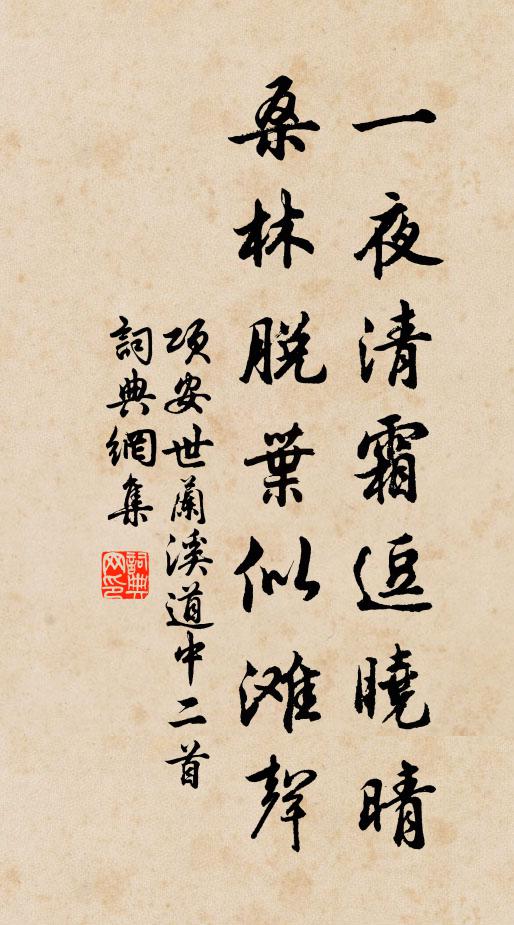 一夜清霜逗曉晴
桑林脱葉似滩聲
項安世蘭溪道中二首
詞典網集
詞典網印